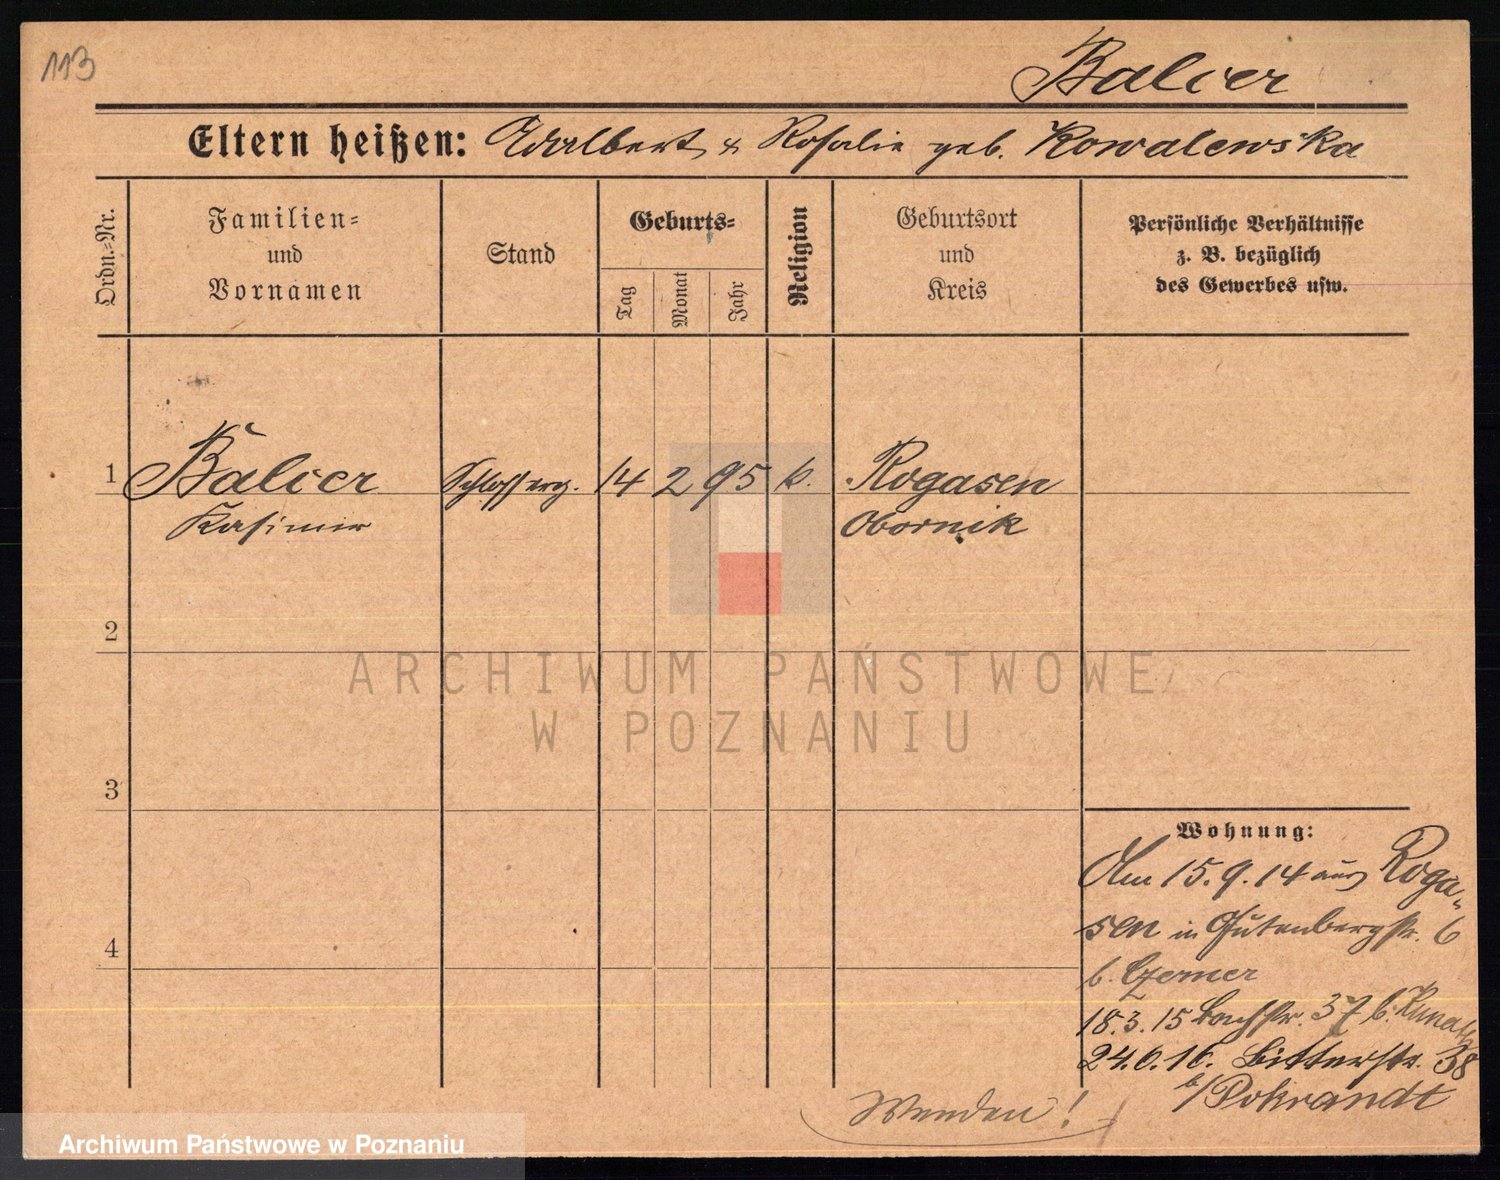 113
Balcer
Eltern heißen: Adalbert & Rosalie geb. Kowalewska
Ordn.-Nr.
Familien-
und
Vornamen
Stand
Geburts-
Tag
Monat
Jahr
Religion
Geburtsort
und
Kreis
Persönliche Verhältnisse
z. B. bezüglich
des Gewerbes usw.
1 Balcer Schlosserg. 14 2 95 k. Rogasen
Kasimir Obornik
2
ARCHIWUM PAŃSTWOWE
W POZNANIU
3
4
Wohnung:
Am 15.9.14 aus Roga-
sen in Gutenbergstr. 6
b.
18.3.15 Bachstr. 37 b.
24.6.16. Bitterstr. 38
b/ Pokrandt
Wenden!
Archiwum Państwowe w Poznaniu